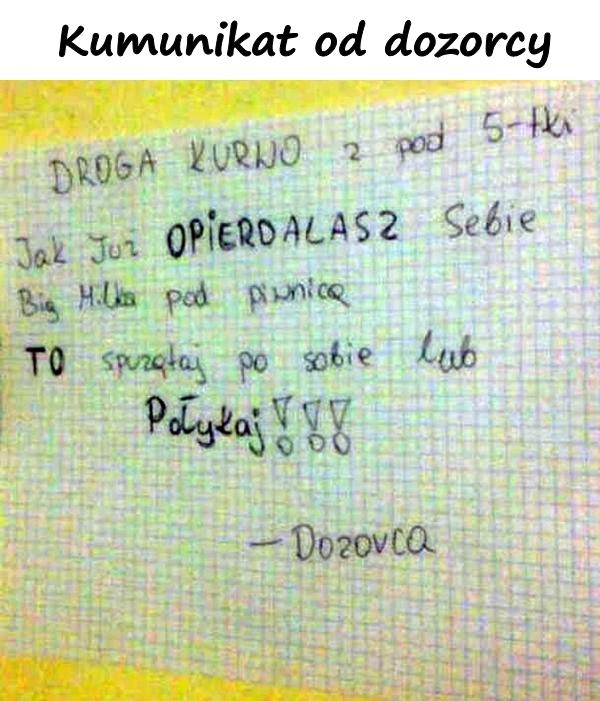 Kumunikat od dozorcy
DROGA KURWO z pod 5-tki
Jak Już OPiERDALASZ Sebie
Big Milka pod piwnicą
TO spuzątaj po sobie lub
Połykaj!!!
- Dozorca